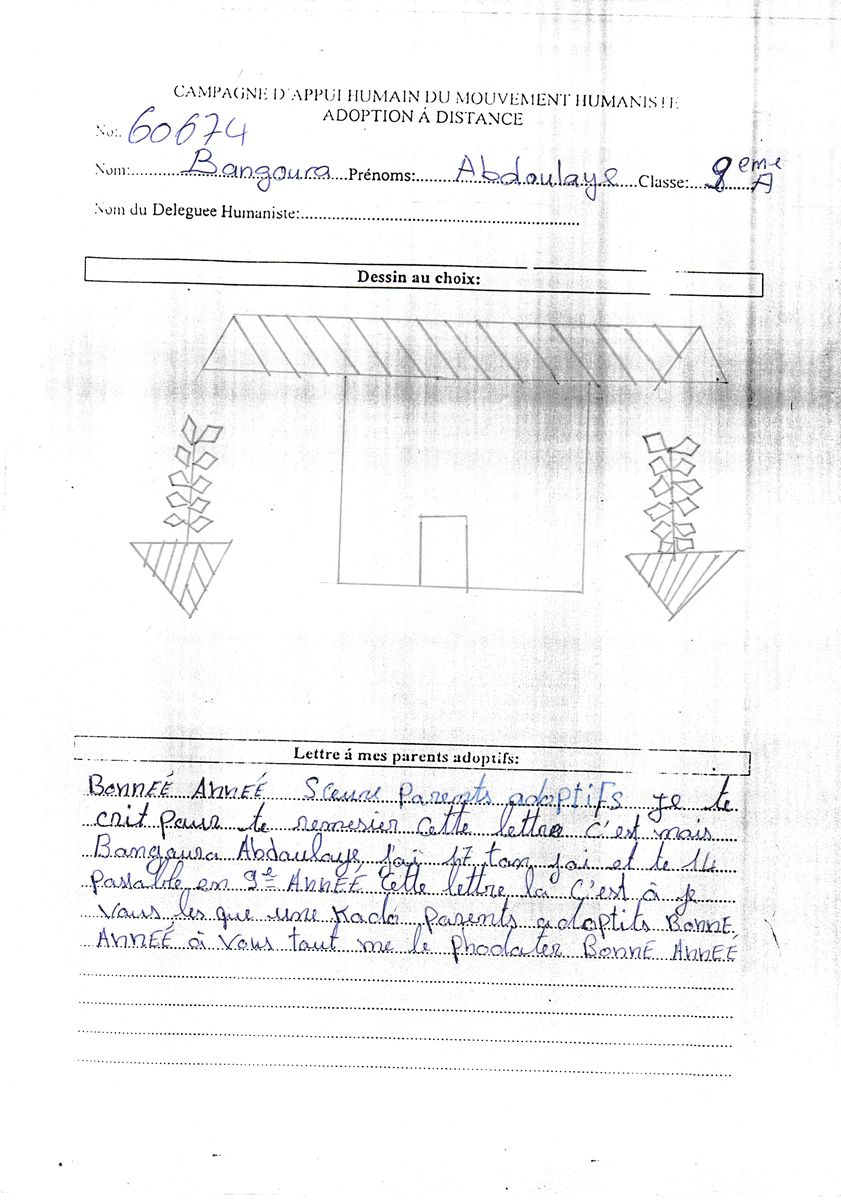 CAMPAGNE D'APPUI HUMAIN DU MOUVEMENT HUMANISTE
ADOPTION Á DISTANCE
No:. 60674
Nom: Bangoura Prénoms: Abdoulaye Classe: 9 eme A
Nom du Deleguee Humaniste:
Dessin au choix:
Lettre á mes parents adoptifs:
BONNEÉ ANNEÉ Sœure Parents adoptifs je te
crit pour te remesier cette lettre c'est mais
Bangoura Abdoulaye j'ai 17 tan jai et te 14
passable en 9e ANNEÉ cette lettre la c'est à je
vous les que une Kado parents adoptits BONNE
ANNEÉ à vous tout me le phodater BONNE ANNEÉ